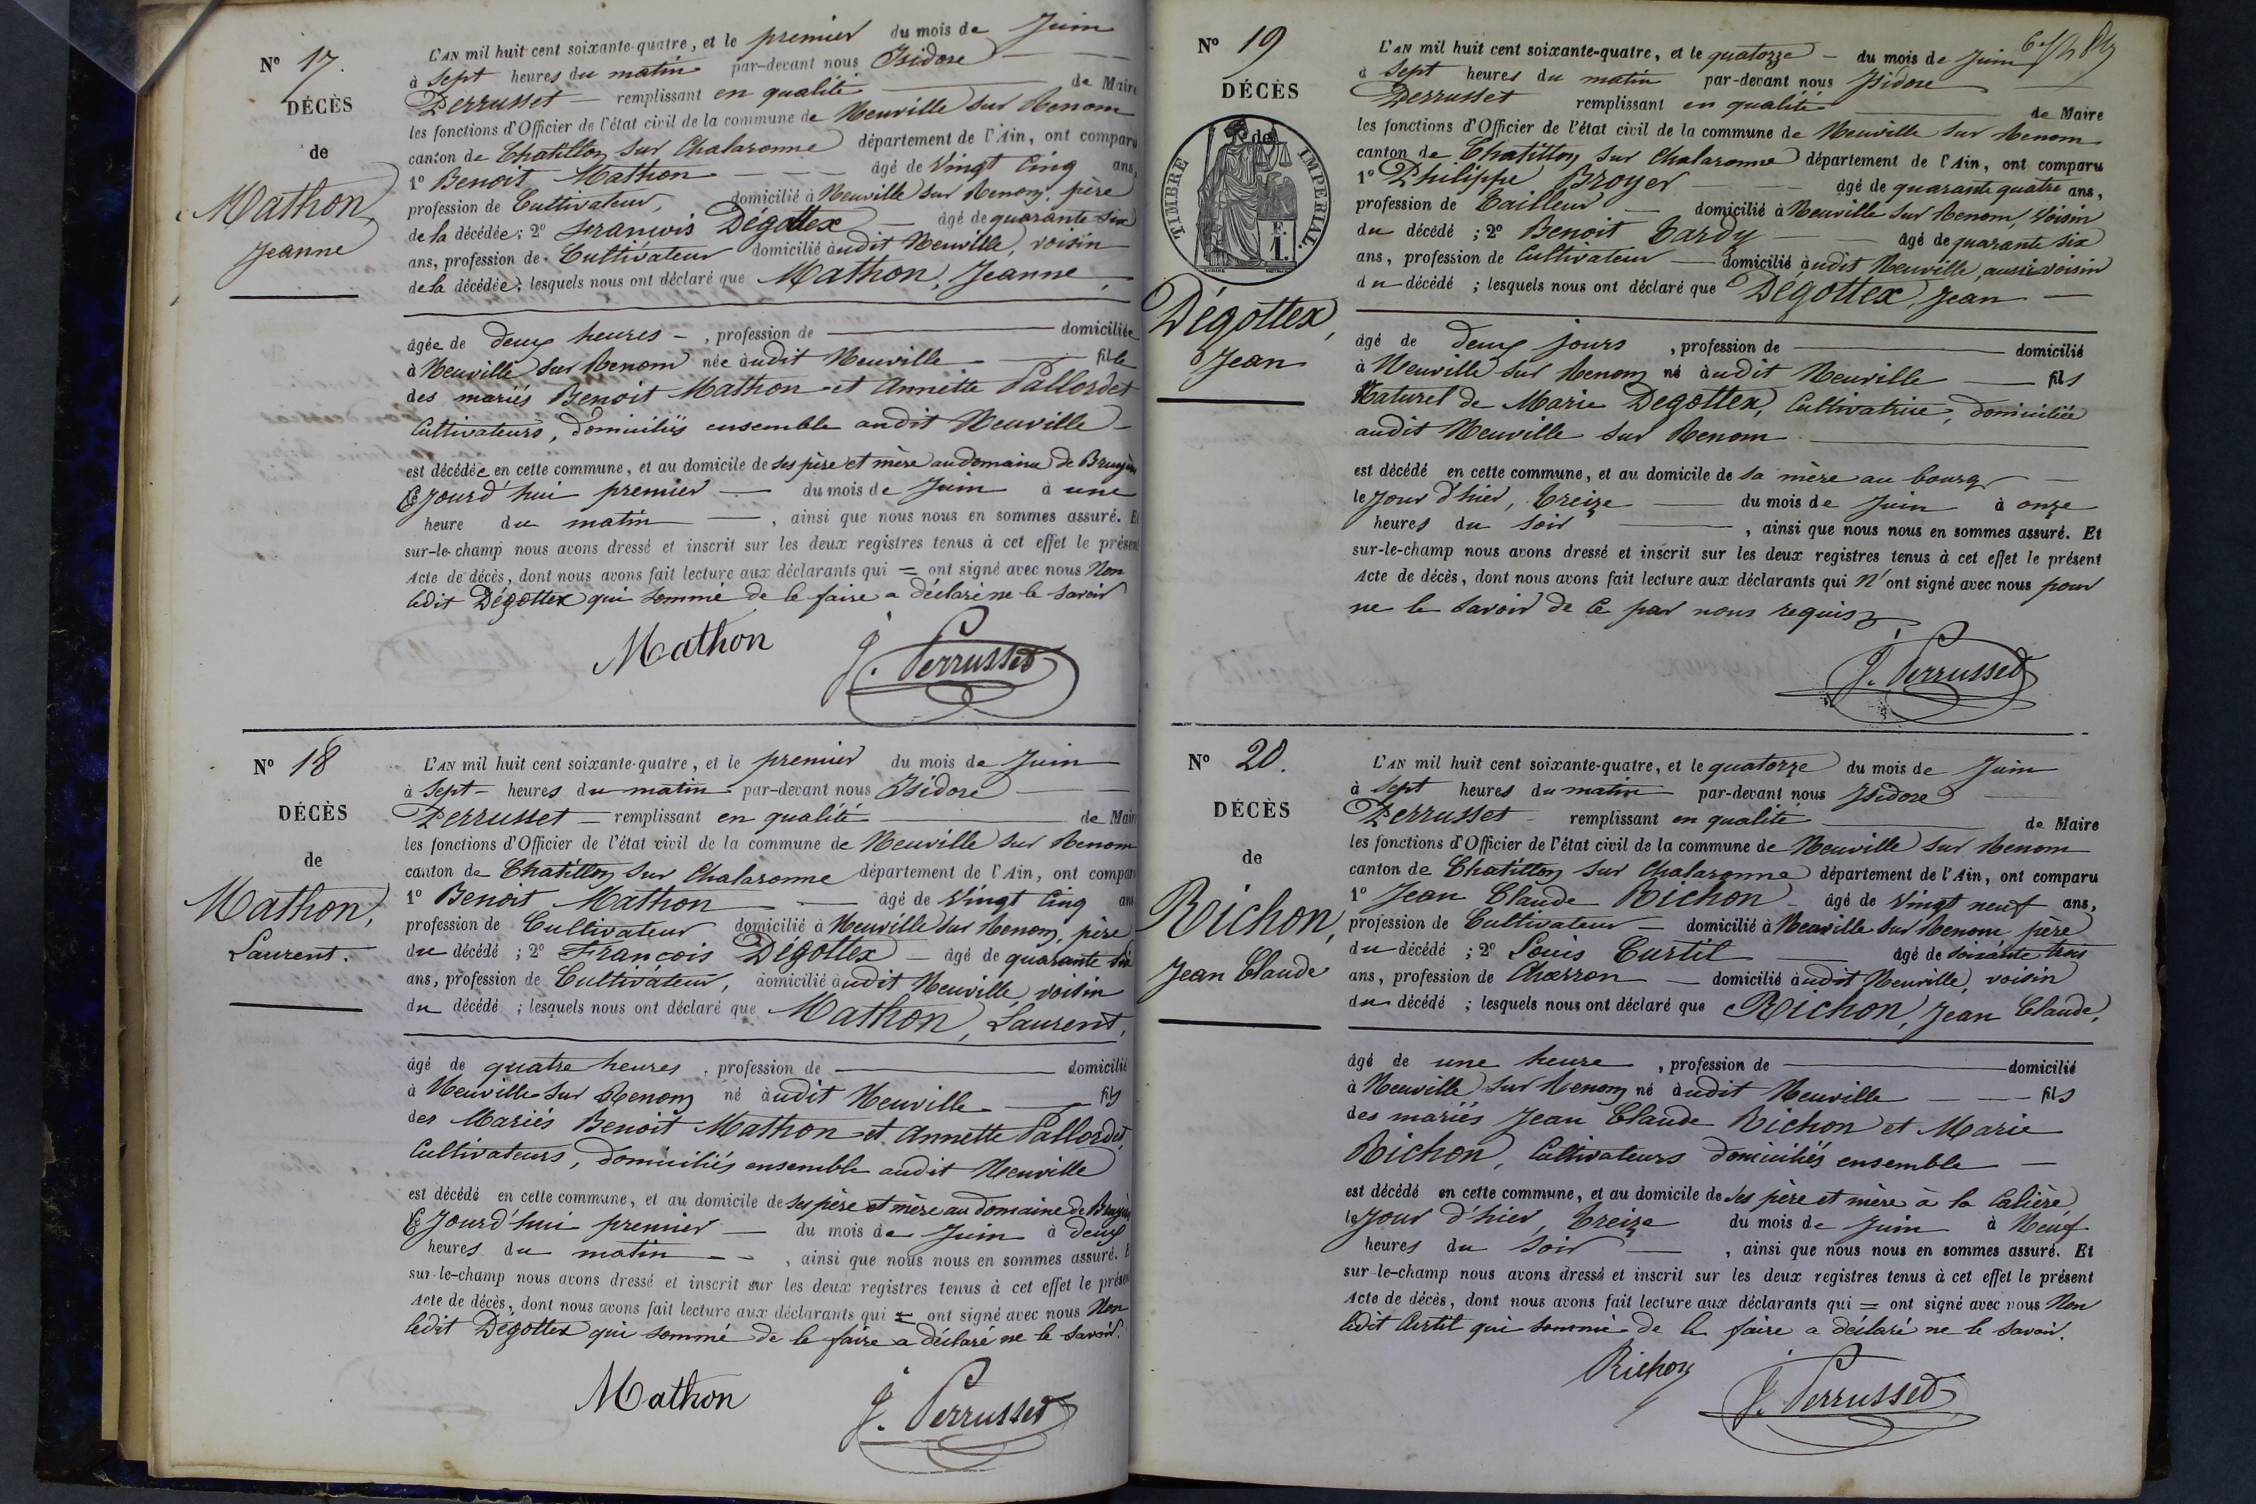 No 17.
DÉCÈS
de
Mathon,
Jeanne
L'AN mil huit cent soixante-quatre, et le premier du mois de Juin
à Sept heures du matin par-devant nous Isidore
Perrusset remplissant en qualité de Maire
les fonctions d'Officier de l'état civil de la commune de Neuville sur Renom
canton de Chatillon sur Chalaronne département de l'Ain, ont comparu
1o Benoit Mathon âgé de Vingt Cinq ans,
profession de Cultivateur, domicilié à Neuville sur Renom, père
de la décédée ; 2o François Dégottex âgé de quarante six
ans, profession de Cultivateur domicilié audit Neuville, voisin
de la décédée ; lesquels nous ont déclaré que Mathon, Jeanne,
âgée de deux heures , profession de domiciliée
à Neuville sur Renom née audit Neuville fille
des mariés Benoit Mathon et Annette Pallordet
Cultivateurs, domiciliés ensemble audit Neuville
est décédée en cette commune, et au domicile de ses père et mère au domaine de
Ce Jourd'hui premier du mois de Juin à une
heure du matin , ainsi que nous nous en sommes assuré. Et
sur-le-champ nous avons dressé et inscrit sur les deux registres tenus à cet effet le présent
Acte de décès, dont nous avons fait lecture aux déclarants qui = ont signé avec nous Non
ledit Dégottex qui sommé de le faire a déclaré ne le savoir
Mathon J. Perrusset
No 18
DÉCÈS
de
Mathon,
Laurent.
L'AN mil huit cent soixante-quatre, et le premier du mois de Juin
à Sept heures du matin par-devant nous Isidore
Perrusset remplissant en qualité de Maire
les fonctions d'Officier de l'état civil de la commune de Neuville sur Renom
canton de Chatillon sur Chalaronne département de l'Ain, ont comparu
1o Benoit Mathon âgé de Vingt Cinq ans
profession de Cultivateur domicilié à Neuville sur Renom, père
du décédé ; 2o François Dégottex âgé de quarante six
ans, profession de Cultivateur, domicilié audit Neuville, voisin
du décédé ; lesquels nous ont déclaré que Mathon, Laurent,
âgé de quatre heures , profession de domicilié
à Neuville sur Renom né audit Neuville fils
des Mariés Benoit Mathon et Annette Pallordet,
Cultivateurs, domiciliés ensemble audit Neuville
est décédé en cette commune, et au domicile de ses père et mère au domaine de
Ce Jourd'hui premier du mois de Juin à deux
heures du matin , ainsi que nous nous en sommes assuré. Et
sur-le-champ nous avons dressé et inscrit sur les deux registres tenus à cet effet le présent
Acte de décès, dont nous avons fait lecture aux déclarants qui = ont signé avec nous Non
ledit Dégottex qui sommé de le faire a déclaré ne le savoir.
Mathon J. Perrusset
No 19
DÉCÈS
de
TIMBRE IMPERIAL.
1 F.
Dégottex,
Jean
L'AN mil huit cent soixante-quatre, et le quatorze du mois de Juin
à Sept heures du matin par-devant nous Isidore
Perrusset remplissant en qualité de Maire
les fonctions d'Officier de l'état civil de la commune de Neuville sur Renom
canton de Chatillon sur Chalaronne département de l'Ain, ont comparu
1o Philippe Broyer âgé de quarante quatre ans,
profession de Tailleur domicilié à Neuville sur Renom, Voisin
du décédé ; 2o Benoit Tardy âgé de quarante six
ans, profession de Cultivateur domicilié audit Neuville, aussi voisin
du décédé ; lesquels nous ont déclaré que Dégottex, Jean
âgé de deux jours , profession de domicilié
à Neuville sur Renom né audit Neuville fils
Naturel de Marie Degottex, Cultivatrice, domiciliée
audit Neuville sur Renom
est décédé en cette commune, et au domicile de sa mère au bourg
le Jour d'hier, treize du mois de Juin à onze
heures du soir , ainsi que nous nous en sommes assuré. Et
sur-le-champ nous avons dressé et inscrit sur les deux registres tenus à cet effet le présent
Acte de décès, dont nous avons fait lecture aux déclarants qui n'ont signé avec nous pour
ne le savoir de ce par nous requis
J. Perrusset
No 20.
DÉCÈS
de
Richon,
Jean Claude
L'AN mil huit cent soixante-quatre, et le quatorze du mois de Juin
à Sept heures du matin par-devant nous Isidore
Perrusset remplissant en qualité de Maire
les fonctions d'Officier de l'état civil de la commune de Neuville sur Renom
canton de Chatillon sur Chalaronne département de l'Ain, ont comparu
1o Jean Claude Richon âgé de Vingt neuf ans,
profession de Cultivateur domicilié à Neuville sur Renom père
du décédé ; 2o Louis Curtil âgé de soixante
ans, profession de Charron domicilié audit Neuville, voisin
du décédé ; lesquels nous ont déclaré que Richon, Jean Claude,
âgé de une heure , profession de domicilié
à Neuville sur Renom né audit Neuville fils
des mariés Jean Claude Richon et Marie
Richon, Cultivateurs domiciliés ensemble
est décédé en cette commune, et au domicile de ses père et mère à la Calière
le Jour d'hier, treize du mois de Juin à Neuf
heures du soir , ainsi que nous nous en sommes assuré. Et
sur-le-champ nous avons dressé et inscrit sur les deux registres tenus à cet effet le présent
Acte de décès, dont nous avons fait lecture aux déclarants qui = ont signé avec nous Non
ledit Curtil qui sommé de le faire a déclaré ne le savoir.
Richon J. Perrusset